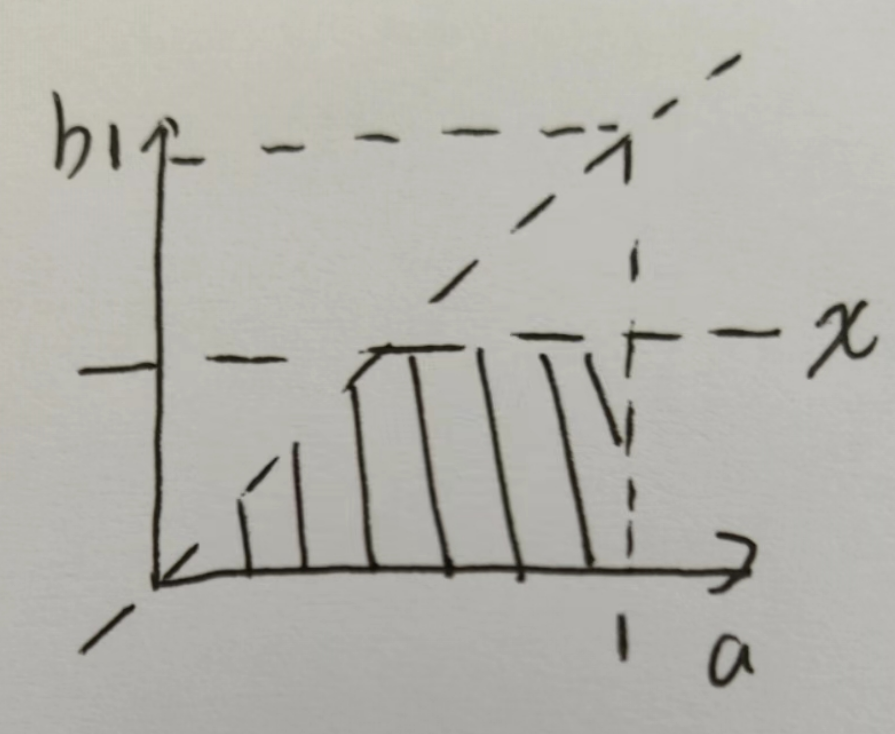 b1
x
1
a